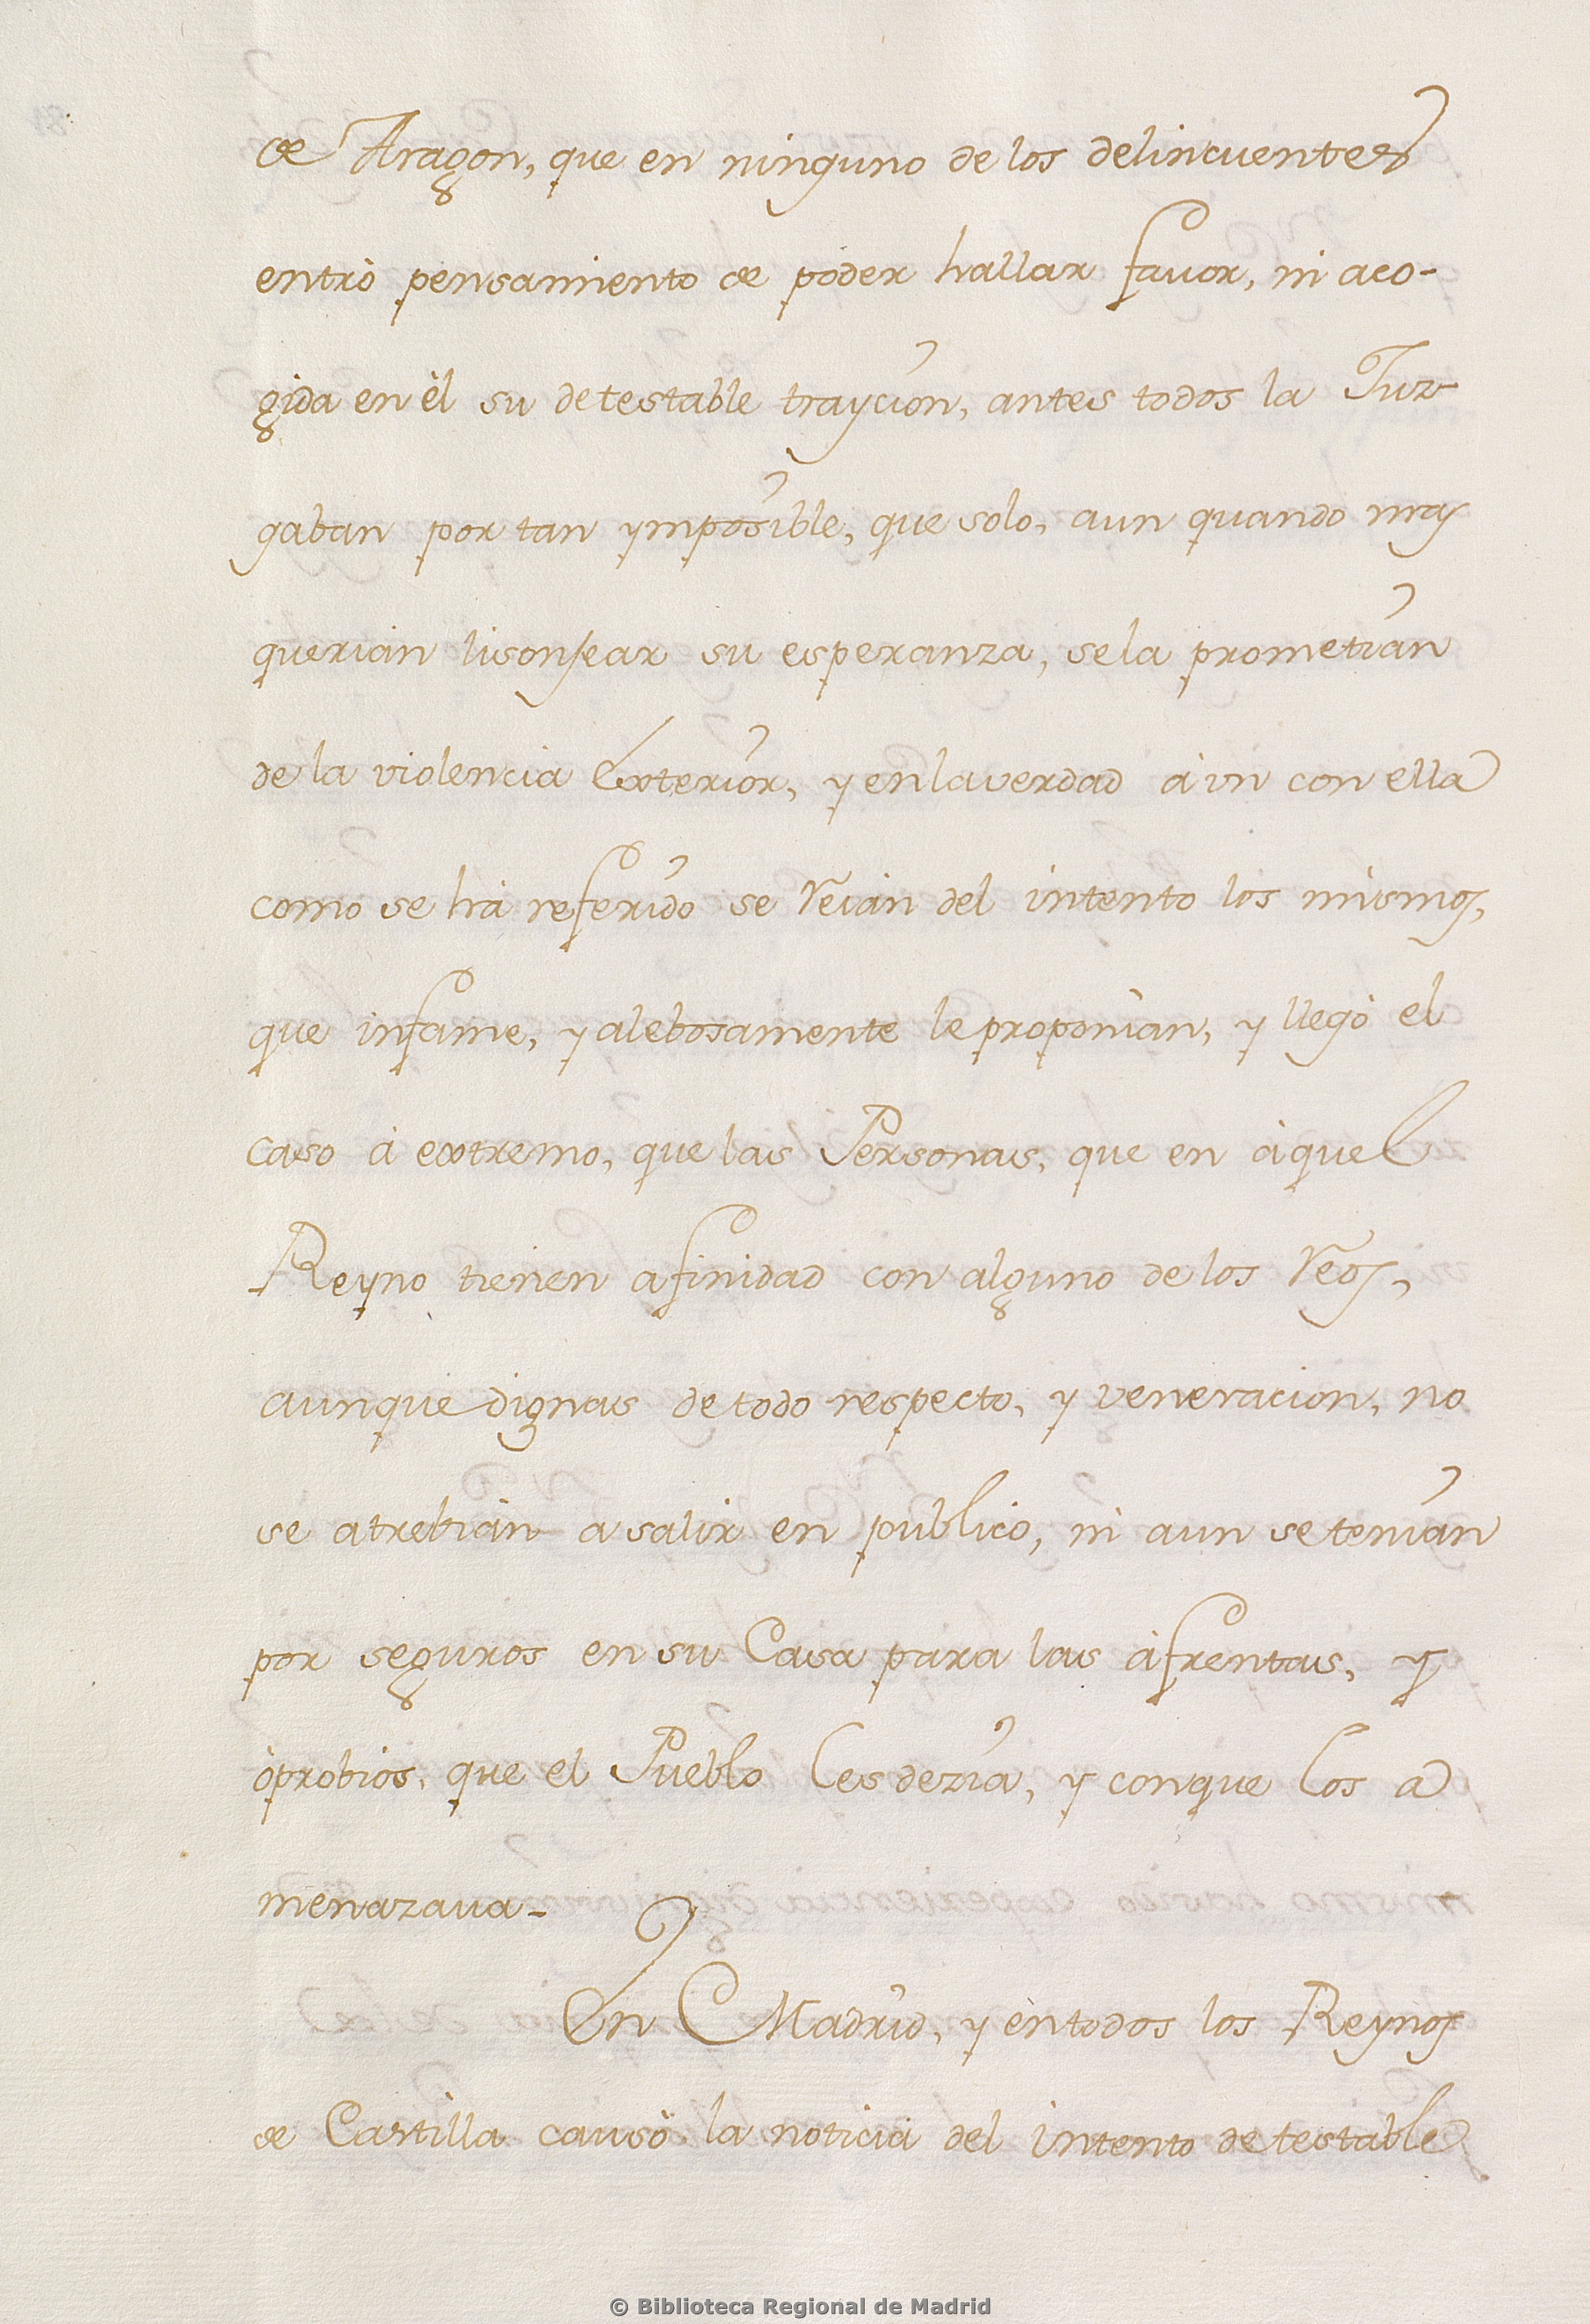 de Aragon, que en ninguno de los delincuentes
entrò pensamiento de poder hallar favor, ni aco-
gida en èl su detestable traycion, antes todos la Juz-
gaban por tan ymposible, que solo, aun quando mas
querian lisonjear su esperanza, se la prometian
de la violencia Exterior, y en la verdad àun con ella
como se hà referido se Reian del intento los mismos,
que infame, y alebosamente le proponian, y llegò el
caso à extremo, que las Personas, que en àquel
Reyno tienen afinidad con alguno de los Reos,
aunque dignas de todo respecto, y veneracion, no
se atrebian a salir en publico, ni aun se tenian
por seguros en su Casa para las àfrentas, y
òprobios, que el Pueblo les dezia, y con que los a
menazaua-
En Madrid, y èn todos los Reynos
de Castilla causò la noticia del intento detestable
© Biblioteca Regional de Madrid